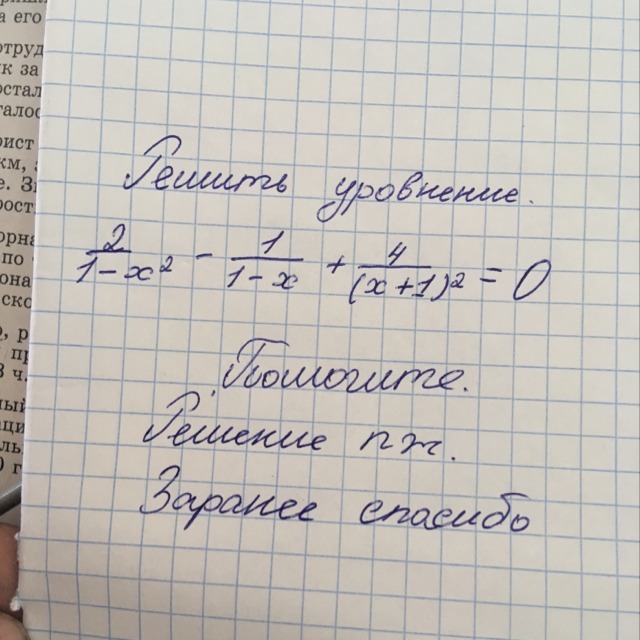 а его
отруд
к за
остал
талос
рист
км,
е. З
рост
орна
по
она
ско
о, р
пр
3 ч.
ный
аци
ль
0 г
Решить уровнение.
2/(1-x²) - 1/(1-x) + 4/(x+1)² = 0
Помогите.
Решение пж.
Заранее спасибо